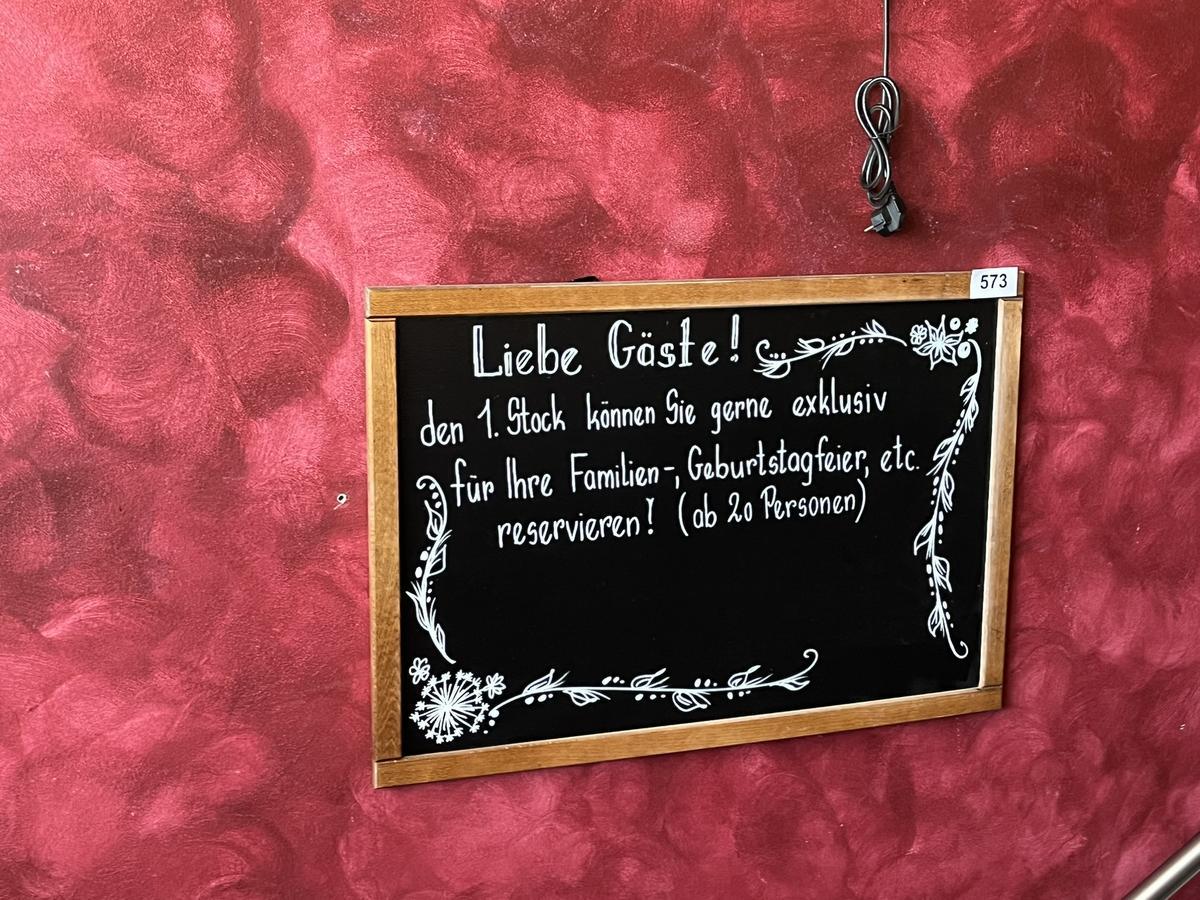 573
Liebe Gäste!
den 1. Stock können Sie gerne exklusiv
für Ihre Familien-, Geburtstagfeier, etc.
reservieren! (ab 20 Personen)